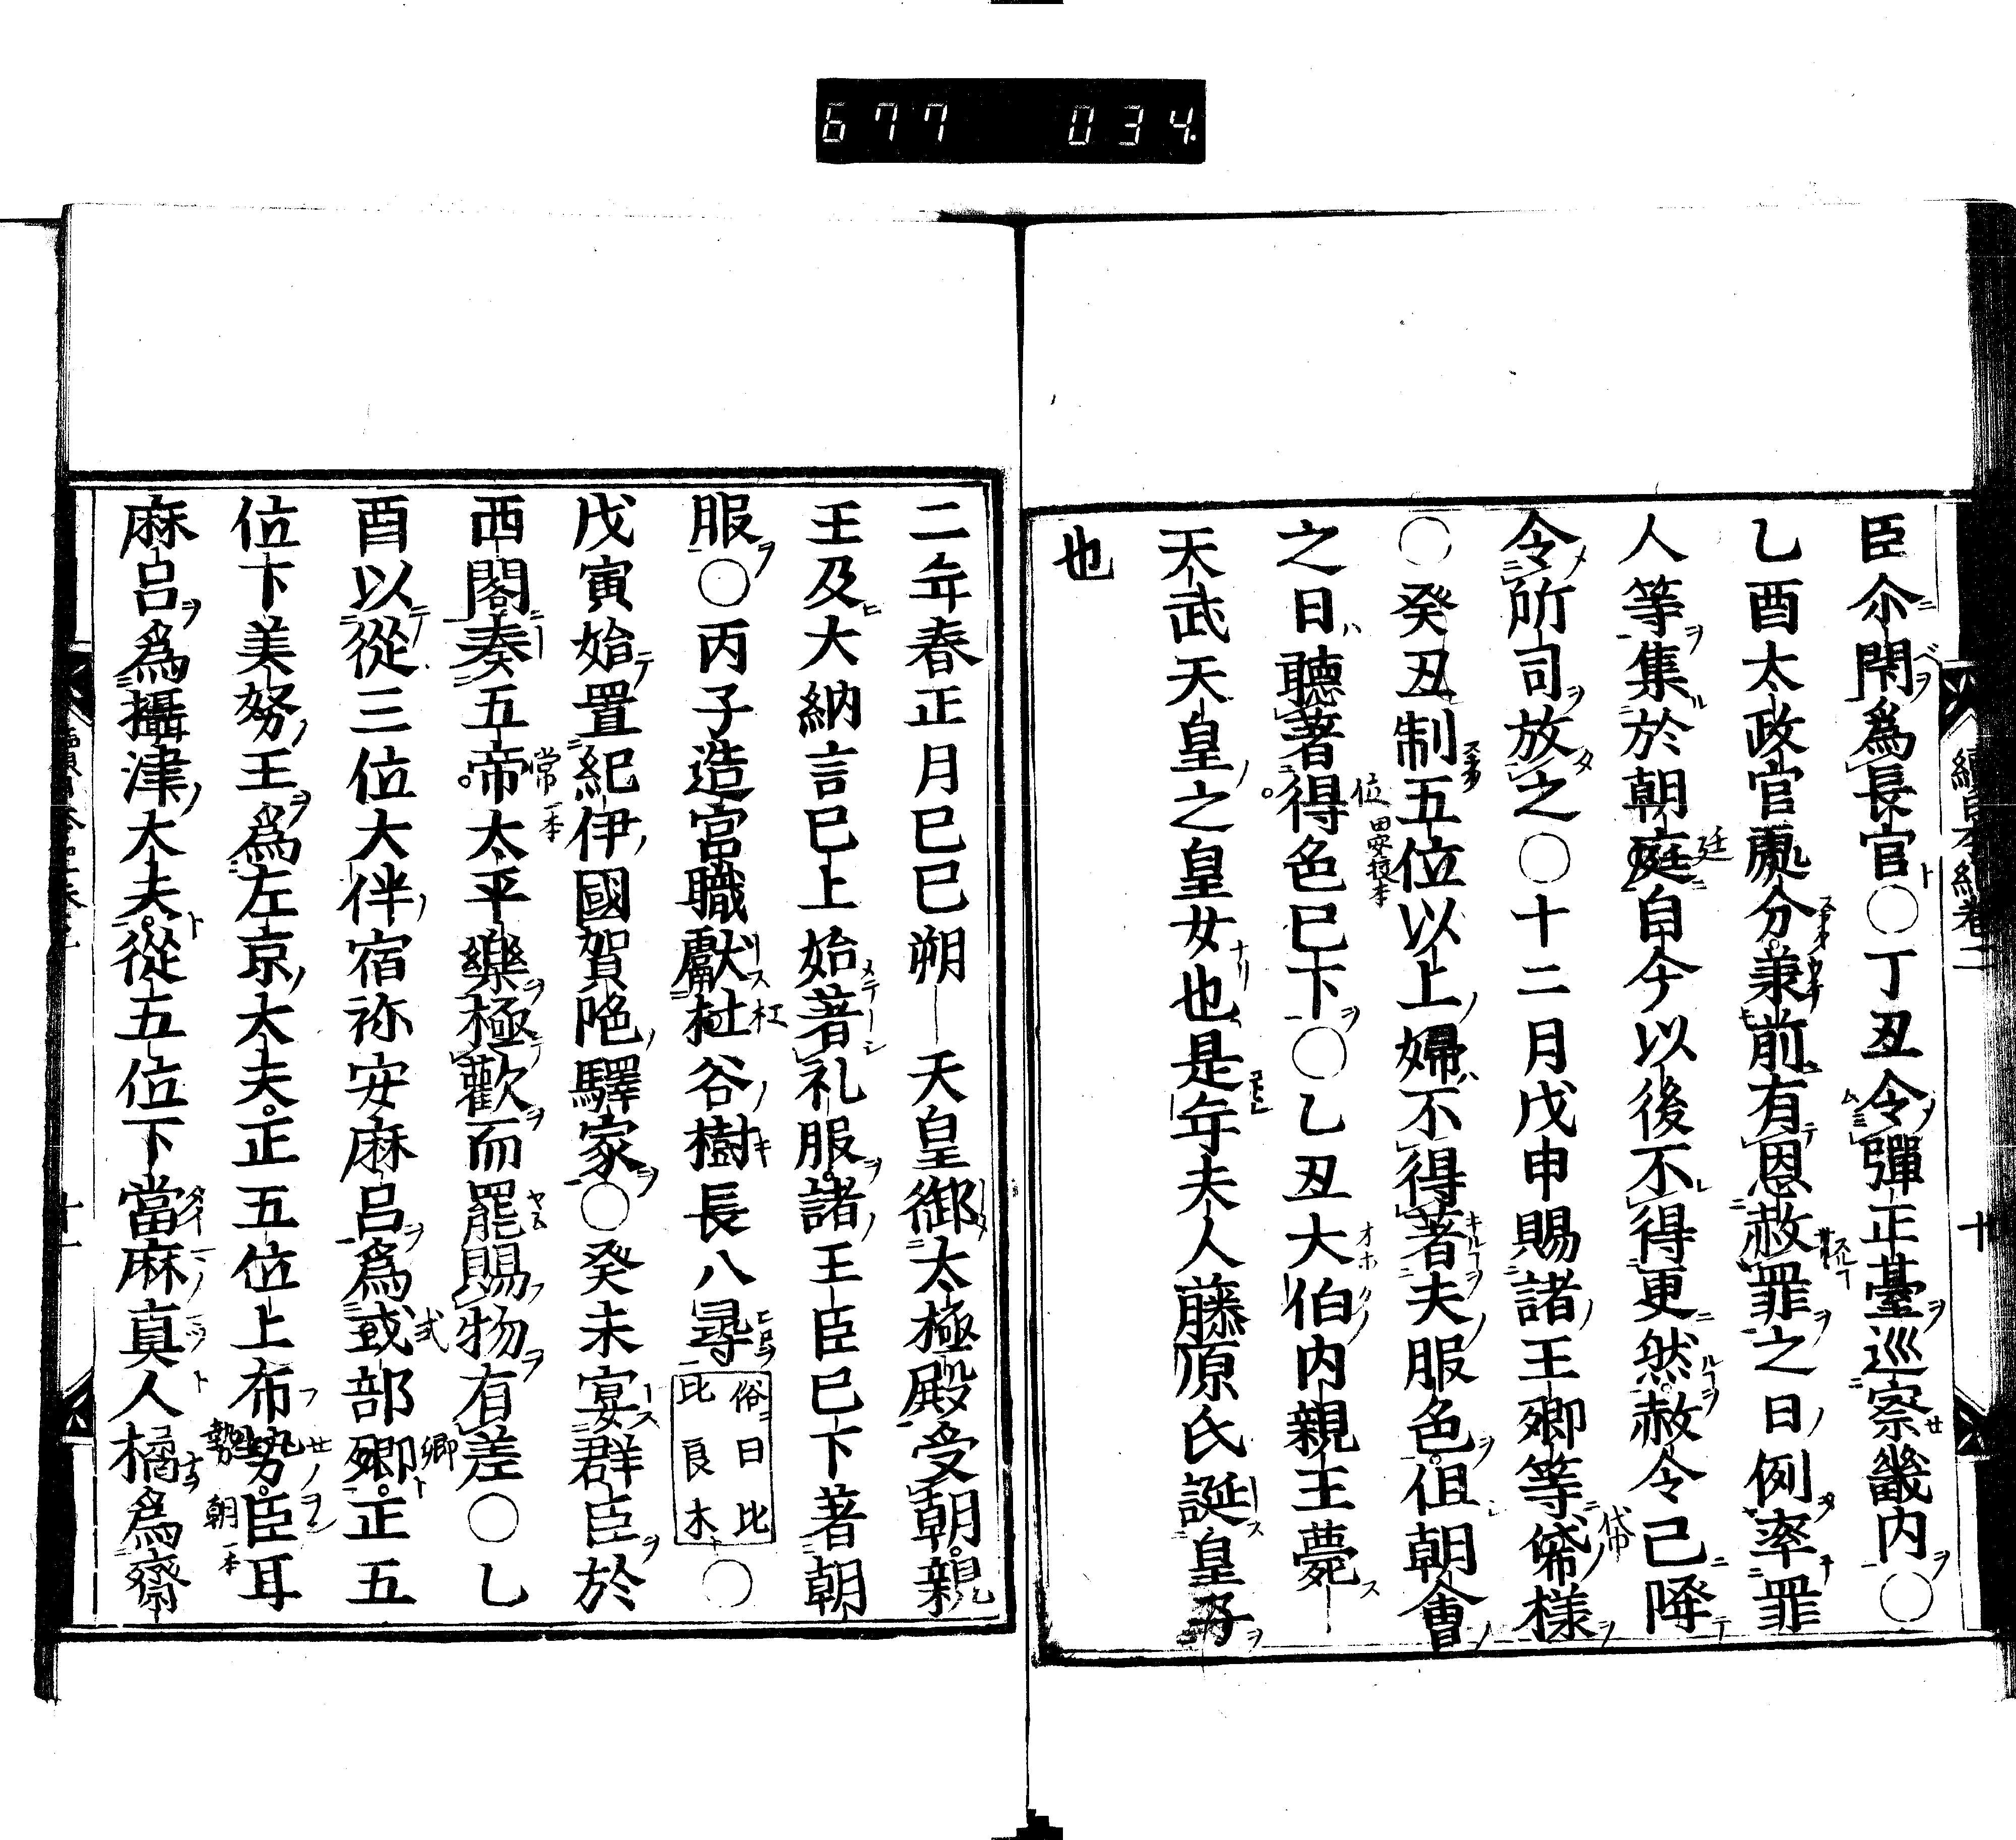 677 034
續日本紀卷二
十
臣尒閇爲長官○丁丑令彈正臺巡察畿内○
乙酉太政官處分兼前有恩赦罪之日例率罪
人等集於朝庭自今以後不得更然赦令已降
令所司放之○十二月戊申賜諸王卿等帒様
○癸丑制五位以上婦不得著夫服色但朝會
之日聽著得色已下○乙丑大伯内親王薨
天武天皇之皇女也是年夫人藤原氏誕皇子
也
二年春正月己巳朔天皇御太極殿受朝親
王及大納言已上始著礼服諸王臣已下著朝
服○丙子造宮職獻杜谷樹長八尋俗曰比比良木○
戊寅始置紀伊國賀陁驛家○癸未宴群臣於
西閣奏五帝太平樂極歡而罷賜物有差○乙
酉以從三位大伴宿祢安麻呂爲式部卿正五
位下美努王爲左京大夫正五位上布勢臣耳
麻呂爲攝津大夫從五位下當麻真人橘爲齋
十一